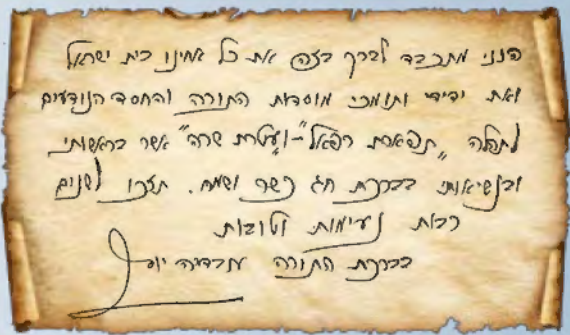 הנני מתכבד לברך בזה את כל אחינו בית ישראל
ואת ידידי ותומכי מוסדות התורה והחסד הנודעים
לתהלה "תפארת רפאל" - "ועטרת שרה" אשר בראשותי
ובנשיאותי בברכת חג כשר ושמח. תזכו לשנים
רבות נעימות וטובות
בברכת התורה עובדיה יוסף